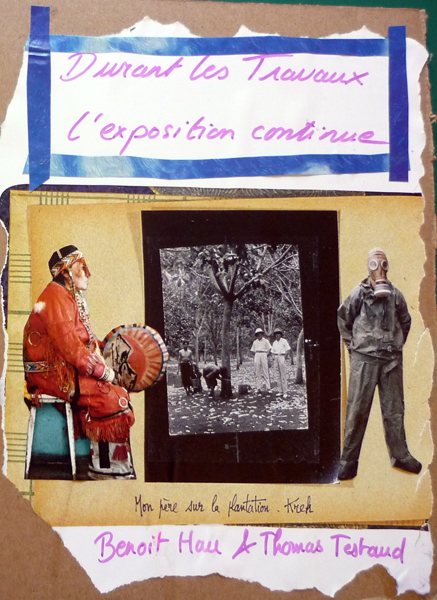 Durant les Travaux
l'exposition continue
Mon père sur la plantation. Krek
Benoit Hau & Thomas Testaud